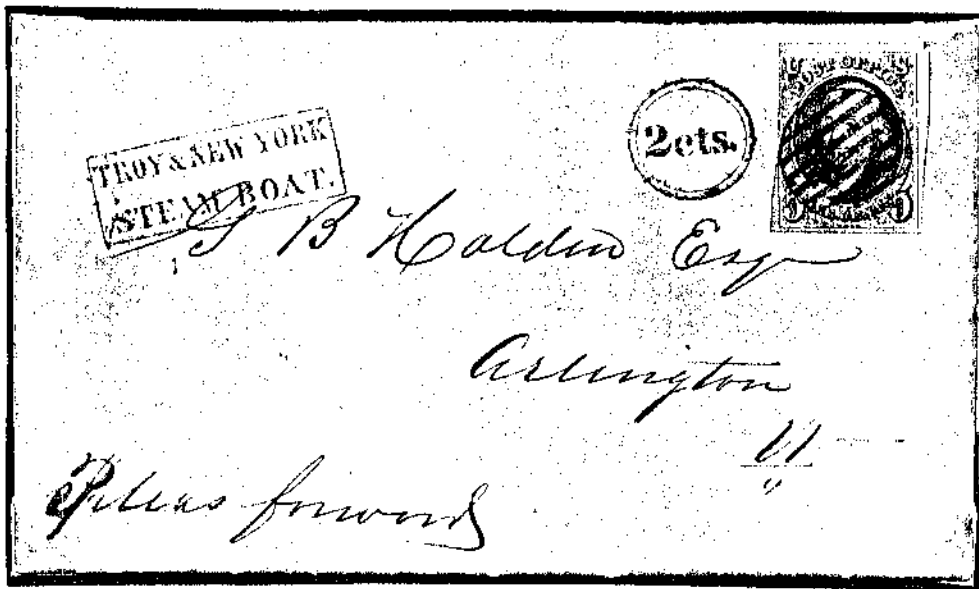 TROY & NEW YORK
STEAM BOAT.
2cts.
U S
POST OFFICE
5 5
G B Holden Esq
Arlington
Vt
Pleas forward